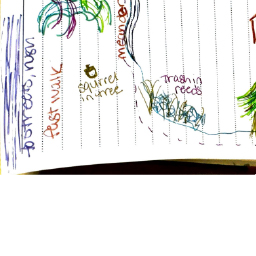 to streets, rush
fast walk
squirrel
in tree
meander
Trash in
reeds